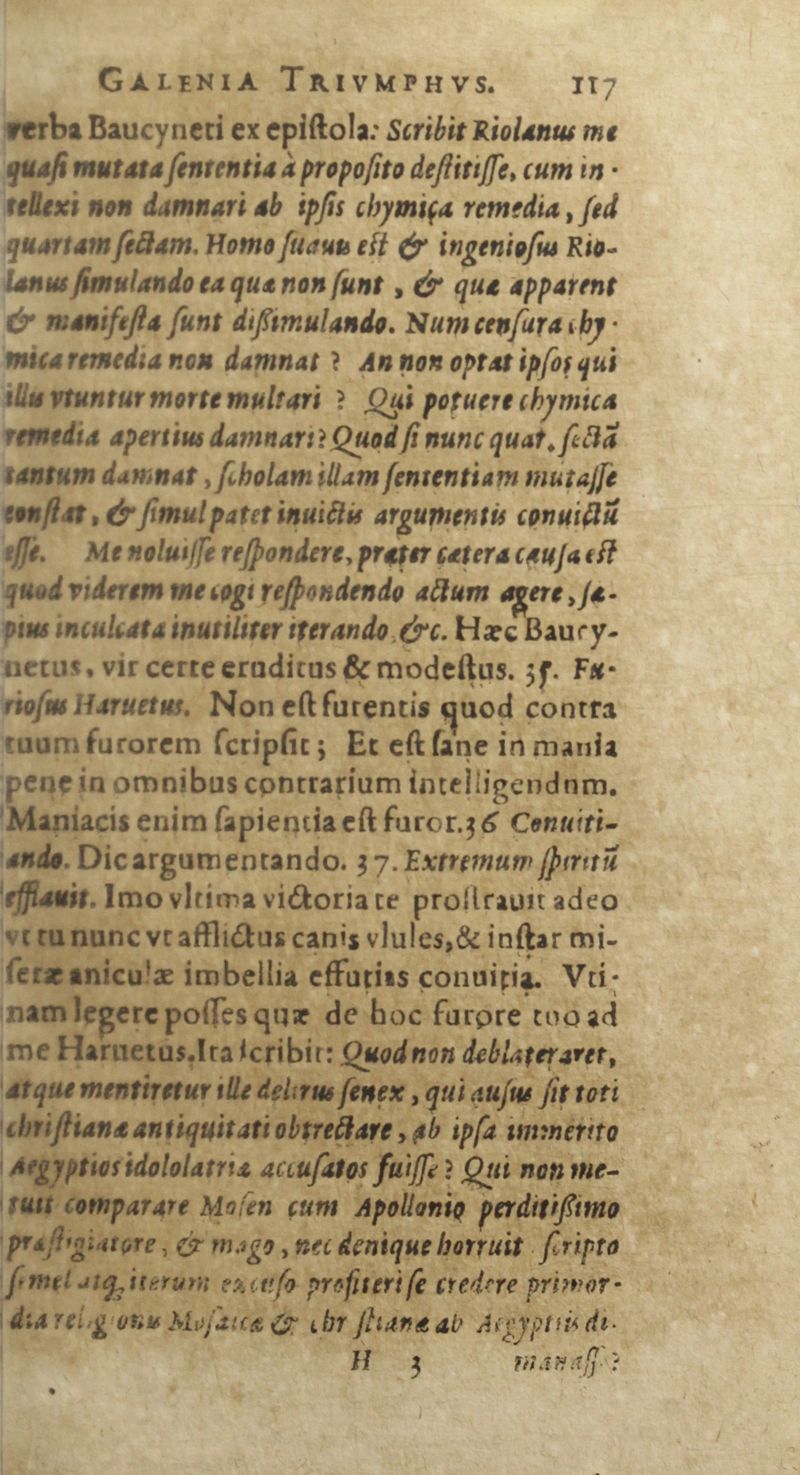 GALENIA TRIVMPHVS. 117
verba Baucyneti ex epiſtola: Scribit Riolanus me
quaſi mutata ſententia à propoſito deſtitiſſe, cum in-
tellexi non damnari ab ipſis chymica remedia, ſed
quartam ſectam. Homo ſuauis eſt & ingenioſus Rio-
lanus ſimulando ea quæ non ſunt, & quæ apparent
& manifeſta ſunt diſsimulando. Num cenſura chy-
mica remedia non damnat ? An non optat ipſos qui
illis vtuntur morte multari ? Qui potuere chymica
remedia apertius damnari? Quod ſi nunc quat. ſectã
tantum damnat, ſcholam illam ſententiam mutaſſe
conſtat, & ſimul patet inuictis argumentis conuictũ
eſſe. Me noluiſſe reſpondere, præter cætera cauſa eſt
quod viderem me cogi reſpondendo actum agere, ſæ-
pius inculcata inutiliter iterando, &c. Hæc Baucy-
netus, vir certe eruditus & modeſtus. 35. Fu-
rioſus Haruetus. Non eſt furentis quod contra
tuum furorem ſcripſit; Et eſt ſane in mania
pene in omnibus contrarium intelligendnm.
Maniacis enim ſapientia eſt furor. 36 Conuiti-
ando. Dic argumentando. 37. Extremum ſpiritũ
efflauit. Imo vltima victoria te proſtrauit adeo
vt tu nunc vt afflictus canis vlules, & inſtar mi-
ſeræ aniculæ imbellia effutias conuitia. Vti-
nam legere poſſes quæ de hoc furore tuo ad
me Haruetus. Ita ſcribit: Quod non deblateraret,
atque mentiretur ille delirus ſenex, qui auſus ſit toti
chriſtianæ antiquitati obtrectare, ab ipſa immerito
Aegyptios idololatriæ accuſatos fuiſſe ? Qui non me-
tuit comparare Moſen cum Apollonio perditiſsimo
præſtigiatore, & mago, nec denique horruit ſcripto
ſemel atq; iterum excuſo profiteri ſe credere primor-
dia religionis Moſaicæ & chriſtianæ ab Aegyptiis di-
H 3 manaſſe?